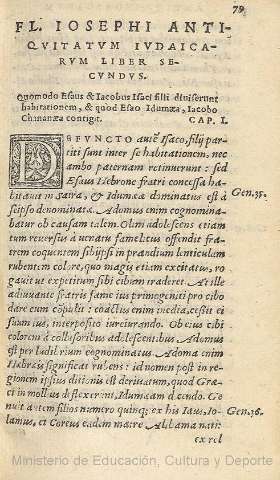 79
FL. IOSEPHI ANTI-
QVITATVM IVDAICA-
RVM LIBER SE-
CVNDVS.
Quomodo Esaus & Iacobus Isaci filii diuiserunt
habitationem, & quod Esao Idumæa, Iacobo
Chananæa contigit. CAP. I.
DEFVNCTO autē Isaco, filij par-
titi sunt inter se habitationem, nec
ambo paternam retinuerunt: sed
Æsaus Hebrone fratri concessa ha- Gen.35.
bitauit in Saira, & Idumææ dominatus est à
seipso denominatæ. Adomus enim cognomina-
batur ob causam talem. Olim adolescens etiam
tum reuersus à uenatu famelicus offendit fratrem
coquentem sibiipsi in prandium lenticulam
rubentem colore, quo magis etiam excitatus, ro-
gauit ut expetitum sibi cibum traderet. At ille
adiuuante fratris fame ius primogeniti pro cibo
dare eum cōpulit: coactus enim inedia, cessit ei
suum ius, interposito iureiurando. Ob eius cibi
colorem à collusoribus adolescentibus Adomus
est per ludibrium cognominatus Adoma enim
Hebræis significat rubens: id nomen post in re-
gionem ipsius ditionis est deriuatum, quod Græ-
ci in mollius deflexerunt, Idumæam dicendo. Ge-
nuit autem filios numero quinq; ex his Iaus, Io- Gen.36.
lamus, et Coreus eadem matre Alibama nati:
ex rel
Ministerio de Educación, Cultura y Deporte